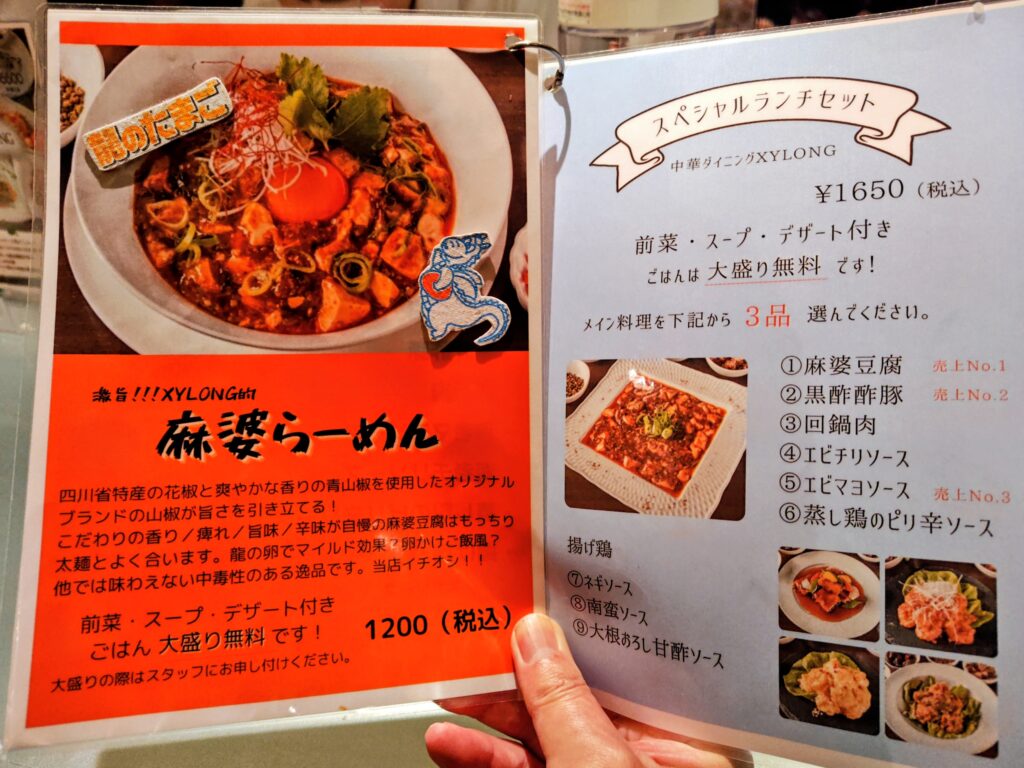 龍のたまご
激旨!!!XYLONG的
麻婆らーめん
四川省特産の花椒と爽やかな香りの青山椒を使用したオリジナル
ブランドの山椒が旨さを引き立てる！
こだわりの香り/痺れ/旨味/辛味が自慢の麻婆豆腐はもっちり
太麺とよく合います。龍の卵でマイルド効果？卵かけご飯風？
他では味わえない中毒性のある逸品です。当店イチオシ！！
前菜・スープ・デザート付き
ごはん 大盛り無料 です！
1200（税込）
大盛りの際はスタッフにお申し付けください。
スペシャルランチセット
中華ダイニングXYLONG
¥1650（税込）
前菜・スープ・デザート付き
ごはんは 大盛り無料 です！
メイン料理を下記から 3品 選んでください。
①麻婆豆腐 売上No.1
②黒酢酢豚 売上No.2
③回鍋肉
④エビチリソース
⑤エビマヨソース 売上No.3
⑥蒸し鶏のピリ辛ソース
揚げ鶏
⑦ネギソース
⑧南蛮ソース
⑨大根おろし甘酢ソース